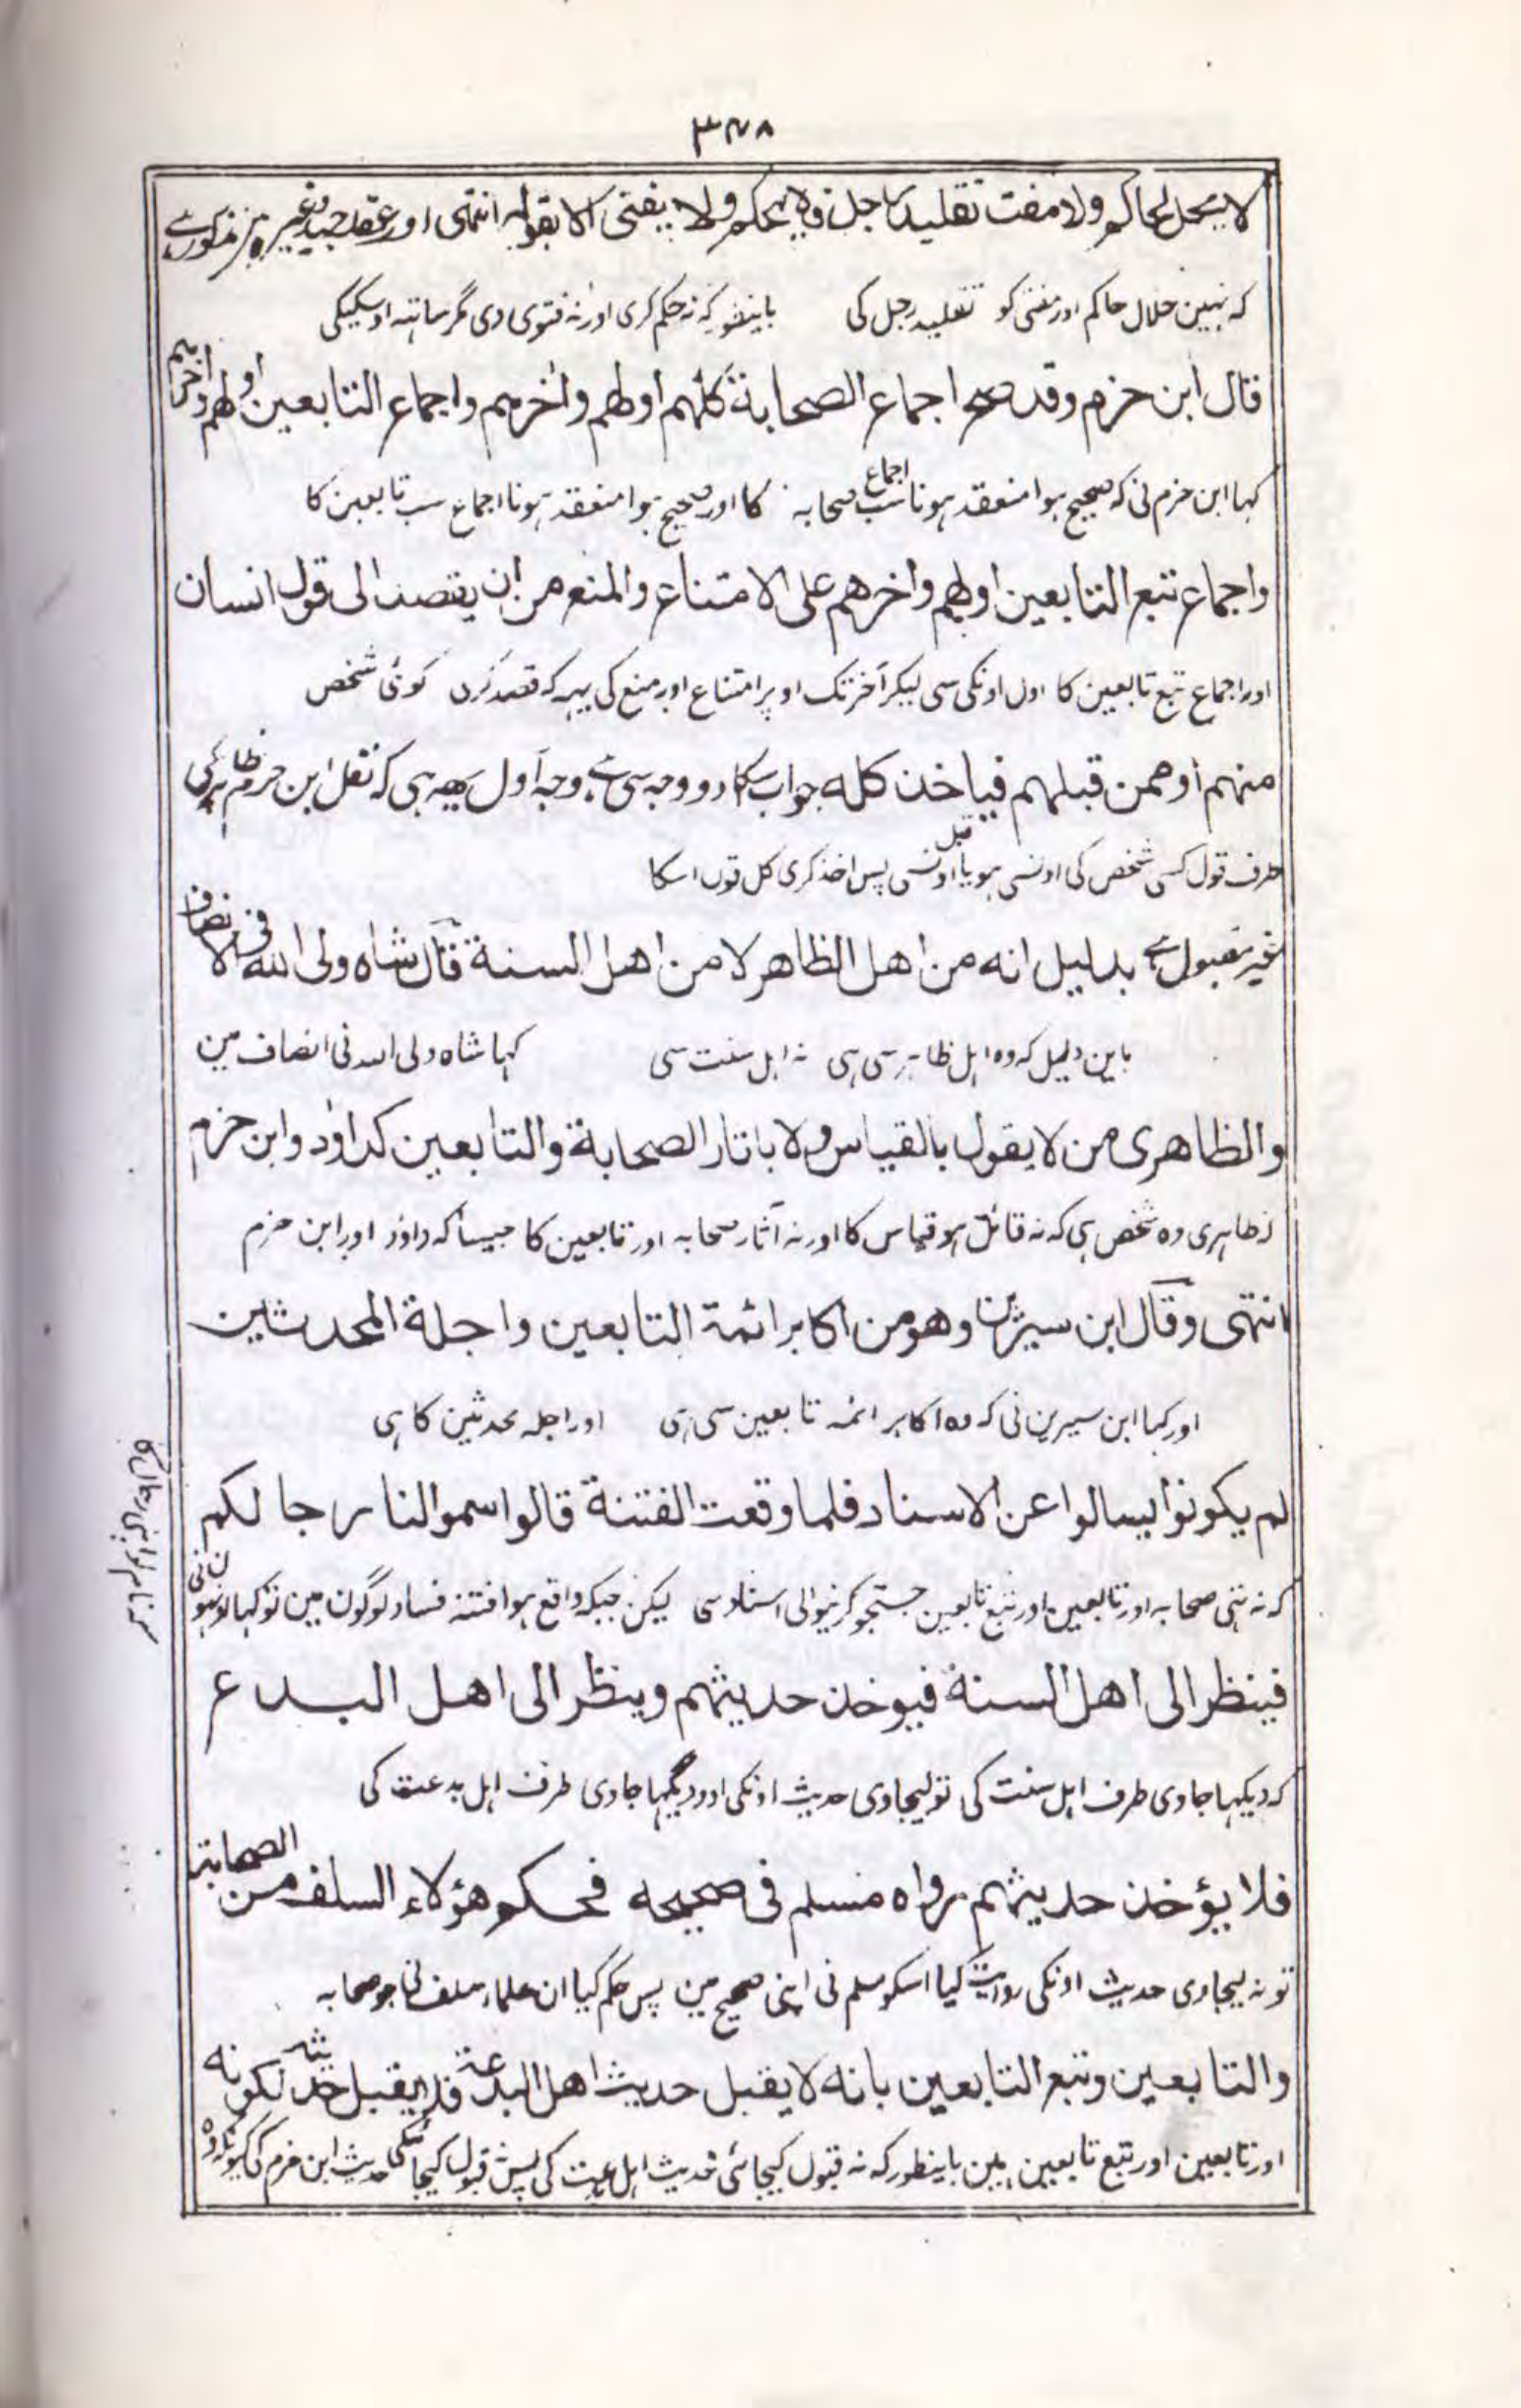 ٣٧٨
لا يحل لحاكم ولا مفت تقليد رجل فلا يحكم ولا يفتى الا بقوله انتهى اور عقد جيد وغيره مين مذكور ہے
کہ نہین حلال حاکم اور مفتی کو تقلید رجل کی باینطور کہ نہ حکم کری اور نہ فتوی دی مگر ساتہہ اوسکیکی
قال ابن حزم وقد صح اجماع الصحابة كلهم اولهم واخرهم واجماع التابعين اولهم واخرهم
کہا ابن حزم نی کہ صحیح ہوا منعقد ہونا اجماع سب صحابہ کا اور صحیح ہوا منعقد ہونا اجماع سب تابعین کا
واجماع تبع التابعين اولهم واخرهم على الامتناع والمنع من ان يقصد الى قول انسان
اور اجماع تبع تابعین کا اول اونکی سی لیکر آخر تک اوپر امتناع اور منع کی یہہ کہ قصد کرن کوئی شخص
منهم او ممن قبلهم فياخذ كله جواب اسکا دو وجہ سی ہے وجہ اول یہہ ہی کہ نقل ابن حزم ظاہری کی
طرف قول کسی شخص کی اونسی ہو یا قبل اونسی پس اخذ کری کل قول اسکا
غیر مقبول ہے بدليل انه من اهل الظاهر لا من اهل السنة قال شاه ولى الله فى الانصاف
باین دلیل کہ وہ اہل ظاہر سی ہی نہ اہل سنت سی کہا شاہ ولی اللہ نی انصاف مین
والظاهرى من لا يقول بالقياس ولا باثار الصحابة والتابعين كداود وابن حزم
ظاہری وہ شخص ہی کہ نہ قائل ہو قیاس کا اور نہ آثار صحابہ اور تابعین کا جیسا کہ داود اور ابن حزم
انتهى وقال ابن سيرين وهو من اكابر ائمة التابعين واجلة المحدثين
اور کہا ابن سیرین نی کہ وہ اکابر ائمہ تابعین سی ہی اور اجلہ محدثین کا ہی
لم يكونوا يسالوا عن الاسناد فلما وقعت الفتنة قالوا سموا لنا رجالكم
کہ نہ تہی صحابہ اور تابعین اور تبع تابعین جستجو کرنیوالی اسناد سی لیکن جبکہ واقع ہوا فتنہ فساد لوگون مین تو کہا اونہون نی
فينظر الى اهل السنة فيوخذ حديثهم وينظر الى اهل البدع
کہ دیکہا جاوی طرف اہل سنت کی تو لیجاوی حدیث اونکی اور دیکہا جاوی طرف اہل بدعت کی
فلا يؤخذ حديثهم رواه مسلم فى صحيحه فحكم هؤلاء السلف من الصحابة
تو نہ لیجاوی حدیث اونکی روایت کیا اسکو مسلم نی اپنی صحیح مین پس حکم کیا ان علماء سلف نی جو صحابہ
والتابعين وتبع التابعين بانه لا يقبل حديث اهل البدعة فلا يقبل حديثه لكونه
اور تابعین اور تبع تابعین ہین باینطور کہ نہ قبول کیجائی حدیث اہل بدعت کی پس قبول کیجائیگی حدیث ابن حزم کی کیونکہ وہ